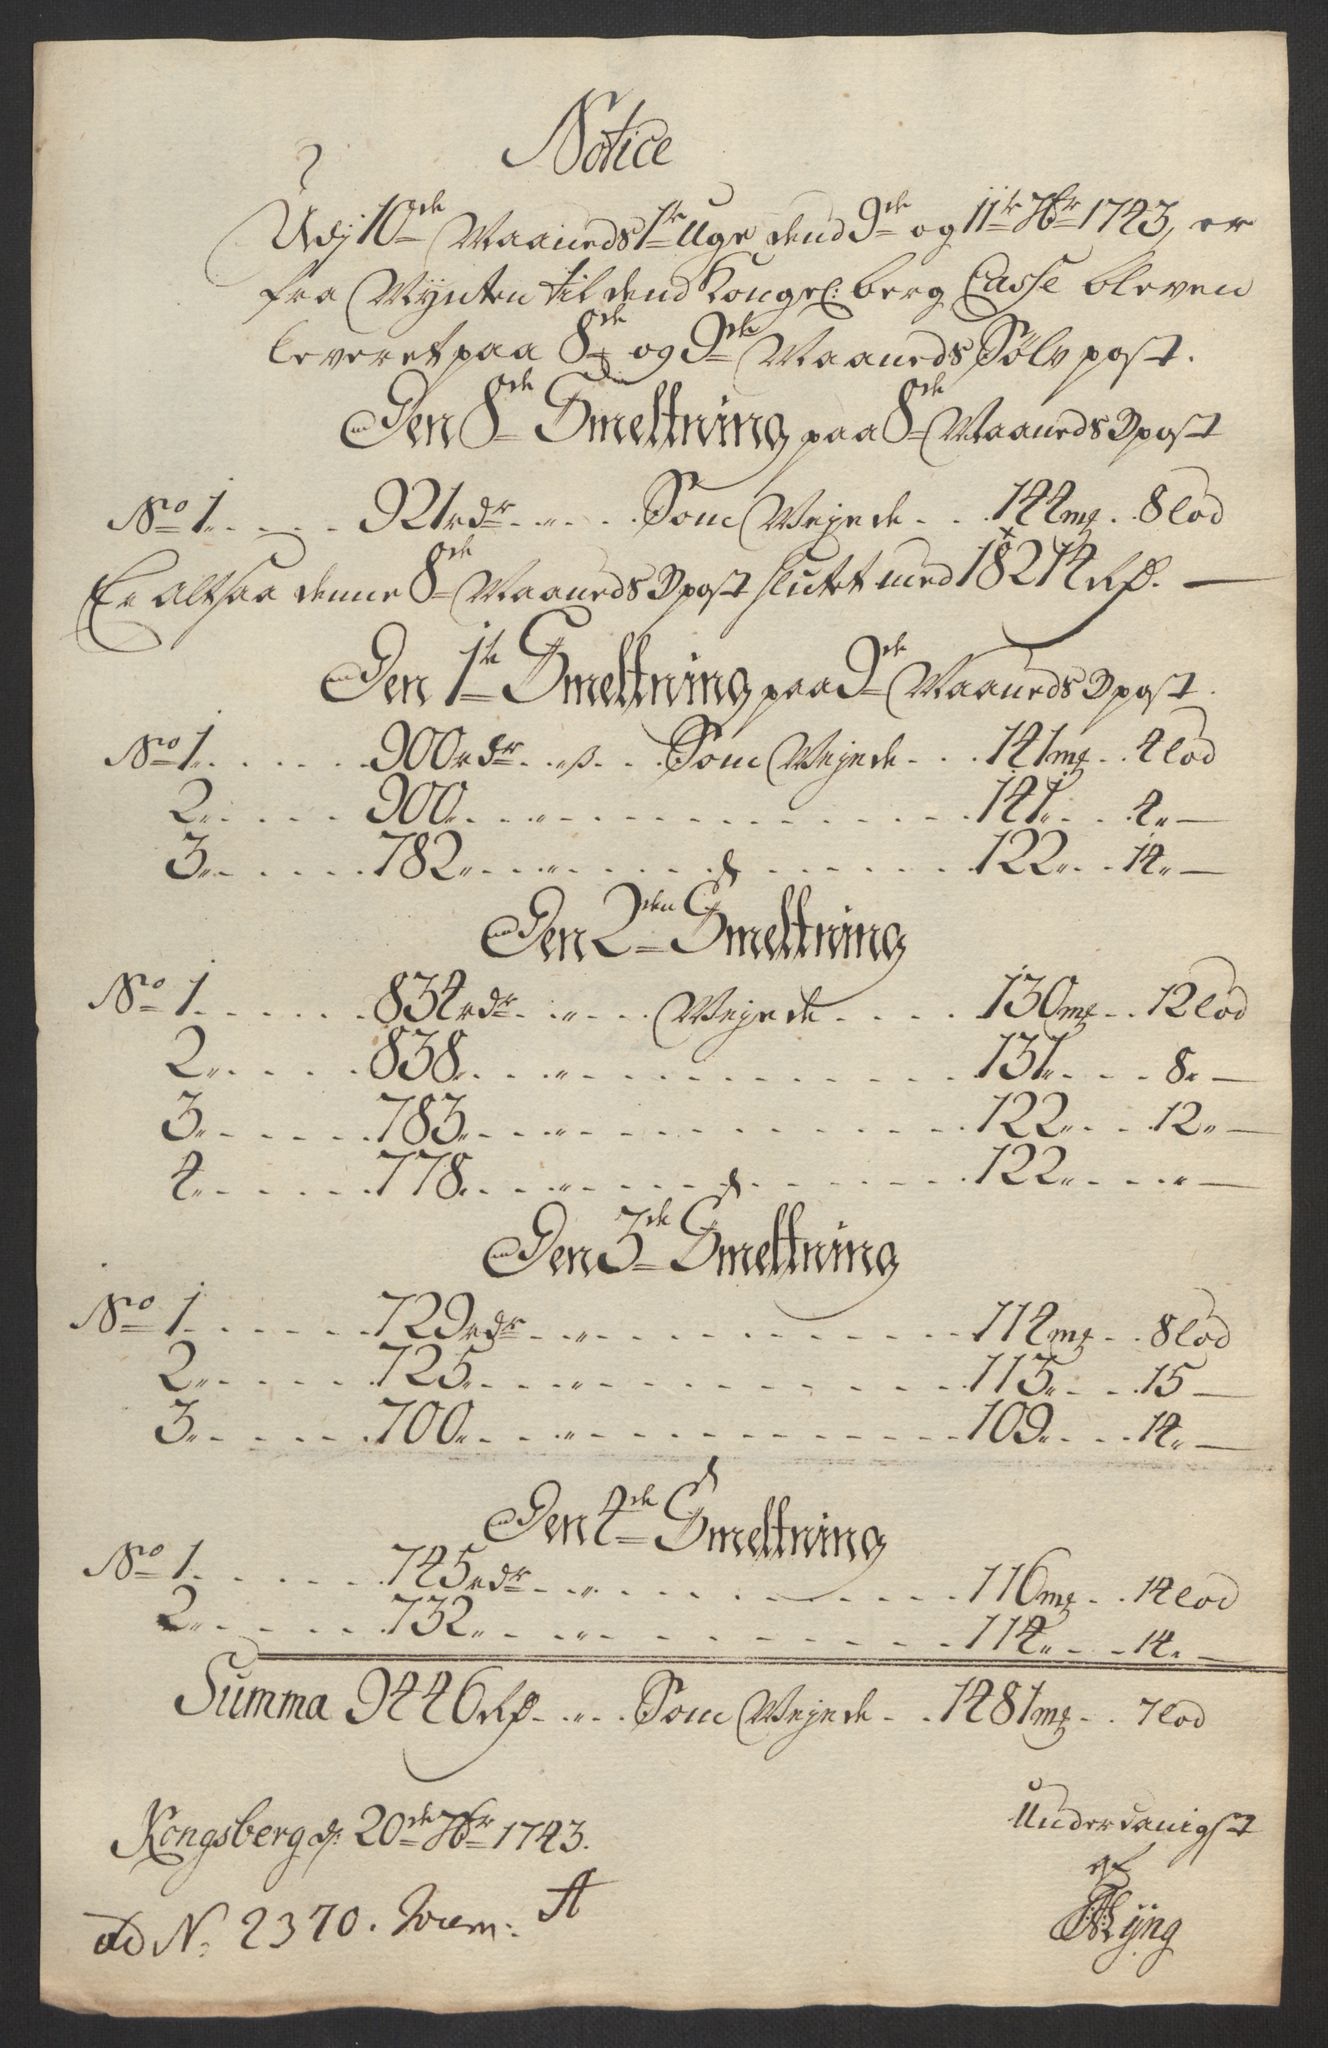 Notice
Udj 10de Maaneds 1te Uge dend 9de og 11te 7br 1743, er
fra Mynten til dend Kongel: berg Casse bleven
leveret paa 8de og 9de Maaneds Sølv post.
Den 8de Smeltning paa 8de Maaneds post
No 1. 921 rdr. „ Som Vejede 144 mk 8 lod
Er altsaa denne 8de Maaneds post slutet med 18214 Rd. —
Den 1te Smeltning paa 9de Maaneds post.
No 1. 900 rdr. „ ß. Som Vejede 141 mk 4 lod
2. 900. „ 141. 4. —
3. 782. „ 122. 14. —
Den 2den Smeltning
No 1. 834 rdr. „ Vejede 130 mk 12 lod
2. 838. „ 131. 8. —
3. 783. „ 122. 12. —
4. 778. „ 122. „ —
Den 3de Smeltning
No 1. 729 rdr. „ 114 mk 8 lod
2. 725. „ 113. 15 —
3. 700. „ 109. 14. —
Den 4de Smeltning
No 1. 745 rdr. „ 116 mk 14 lod
2. 732. „ 114. 14. —
Summa 9446 Rd. „ Som Vejede 1481 mk 7 lod
Kongsberg d: 20de 7br 1743.
Underdanigst
af
Ryng
ad N. 2370. A